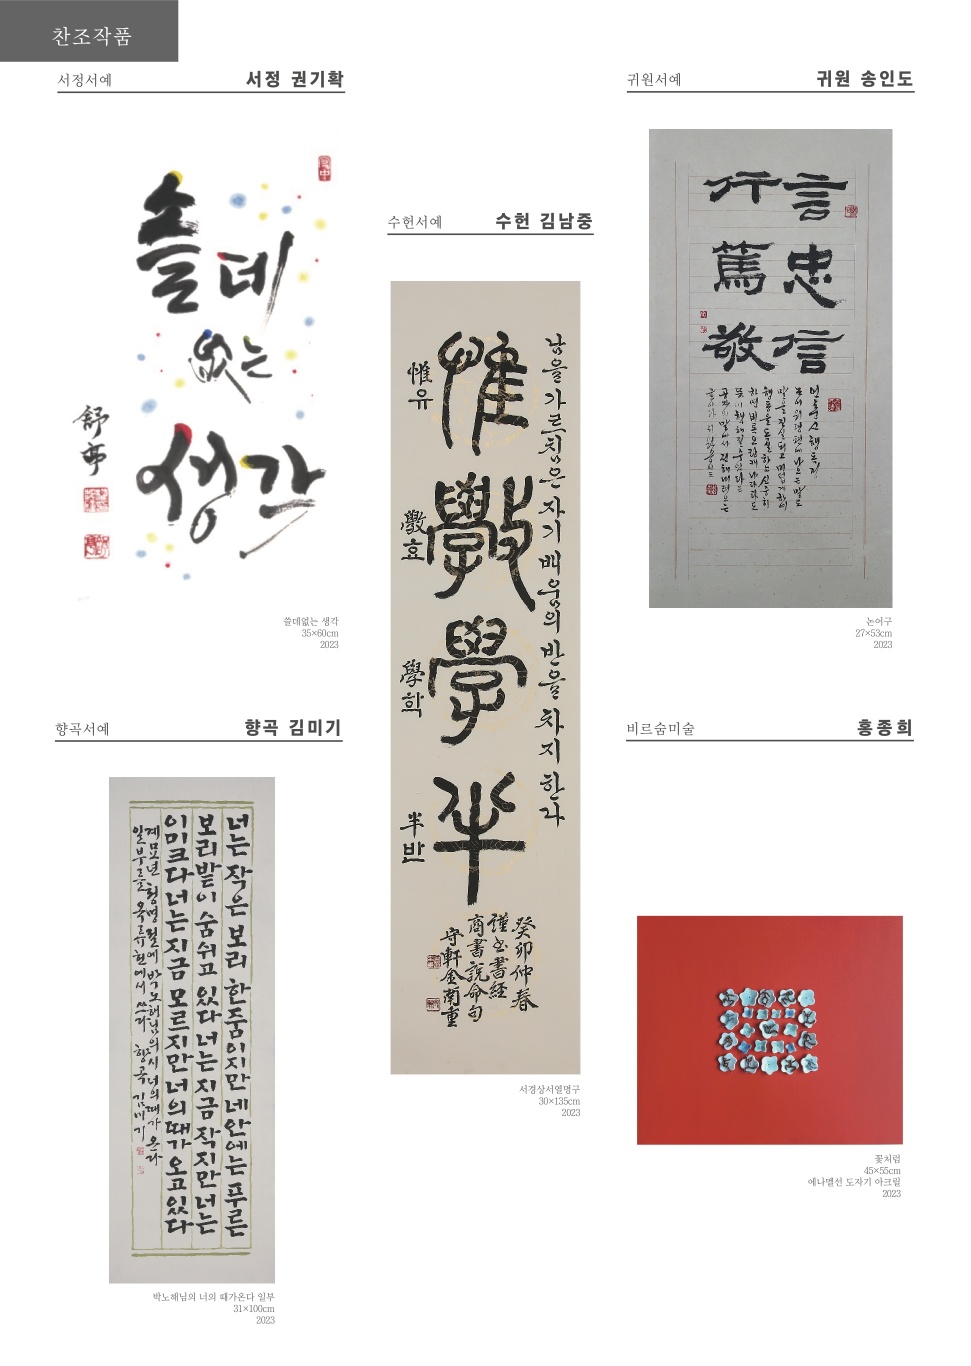 찬조작품
서정서예 서정 권기확
솔데
없는
생각
舒亭
쓸데없는 생각
35×60cm
2023
수헌서예 수헌 김남중
남을 가르침은 자기 배움의 반을 차지한다
惟斅學半
惟유
斅효
學학
半반
癸卯仲春
謹書書経
商書說命句
守軒金南重
서경상서열명구
30×135cm
2023
귀원서예 귀원 송인도
言忠信
行篤敬
논어구
27×53cm
2023
향곡서예 향곡 김미기
너는 작은 보리 한줌이지만 네안에는 푸른
보리밭이 숨쉬고 있다 너는 지금 작지만 너는
이미크다 너는 지금 모르지만 너의 때가 오고있다
계묘년 청명절에 박노해님의 시 너의 때가 온다
일부를 옥류헌에서 쓰다 향곡 김미기
박노해님의 너의 때가온다 일부
31×100cm
2023
비르숨미술 홍종희
꽃처럼
45×55cm
에나멜선 도자기 아크릴
2023